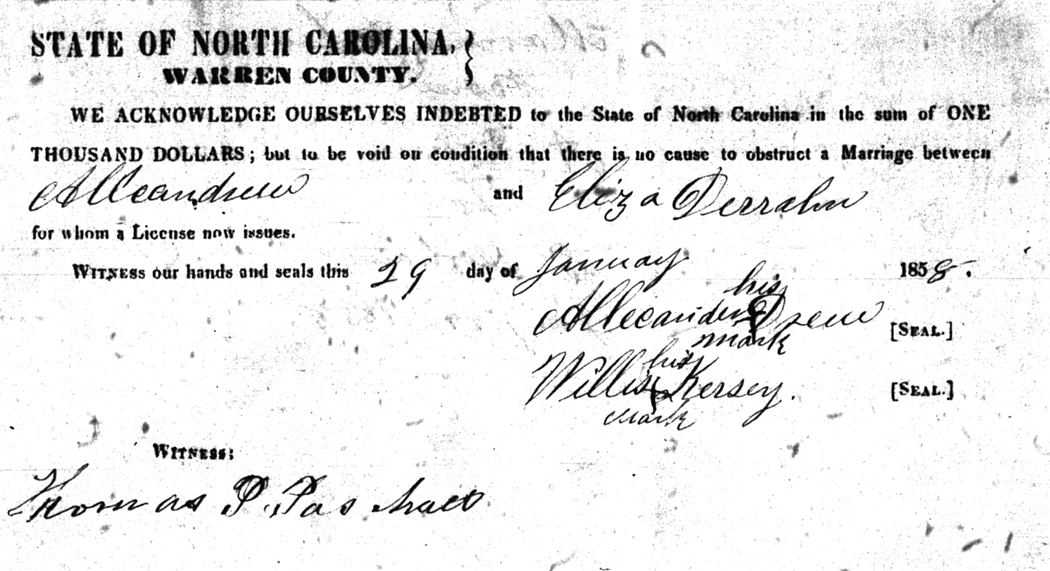 STATE OF NORTH CAROLINA,
WARREN COUNTY.
WE ACKNOWLEDGE OURSELVES INDEBTED to the State of North Carolina in the sum of ONE
THOUSAND DOLLARS; but to be void on condition that there is no cause to obstruct a Marriage between
and Eliza
for whom a License now issues.
WITNESS our hands and seals this 29 day of January 1858.
his
Allecander Drew [SEAL.]
mark
his
Willis Kersey. [SEAL.]
mark
WITNESS:
Thomas P. Paschall